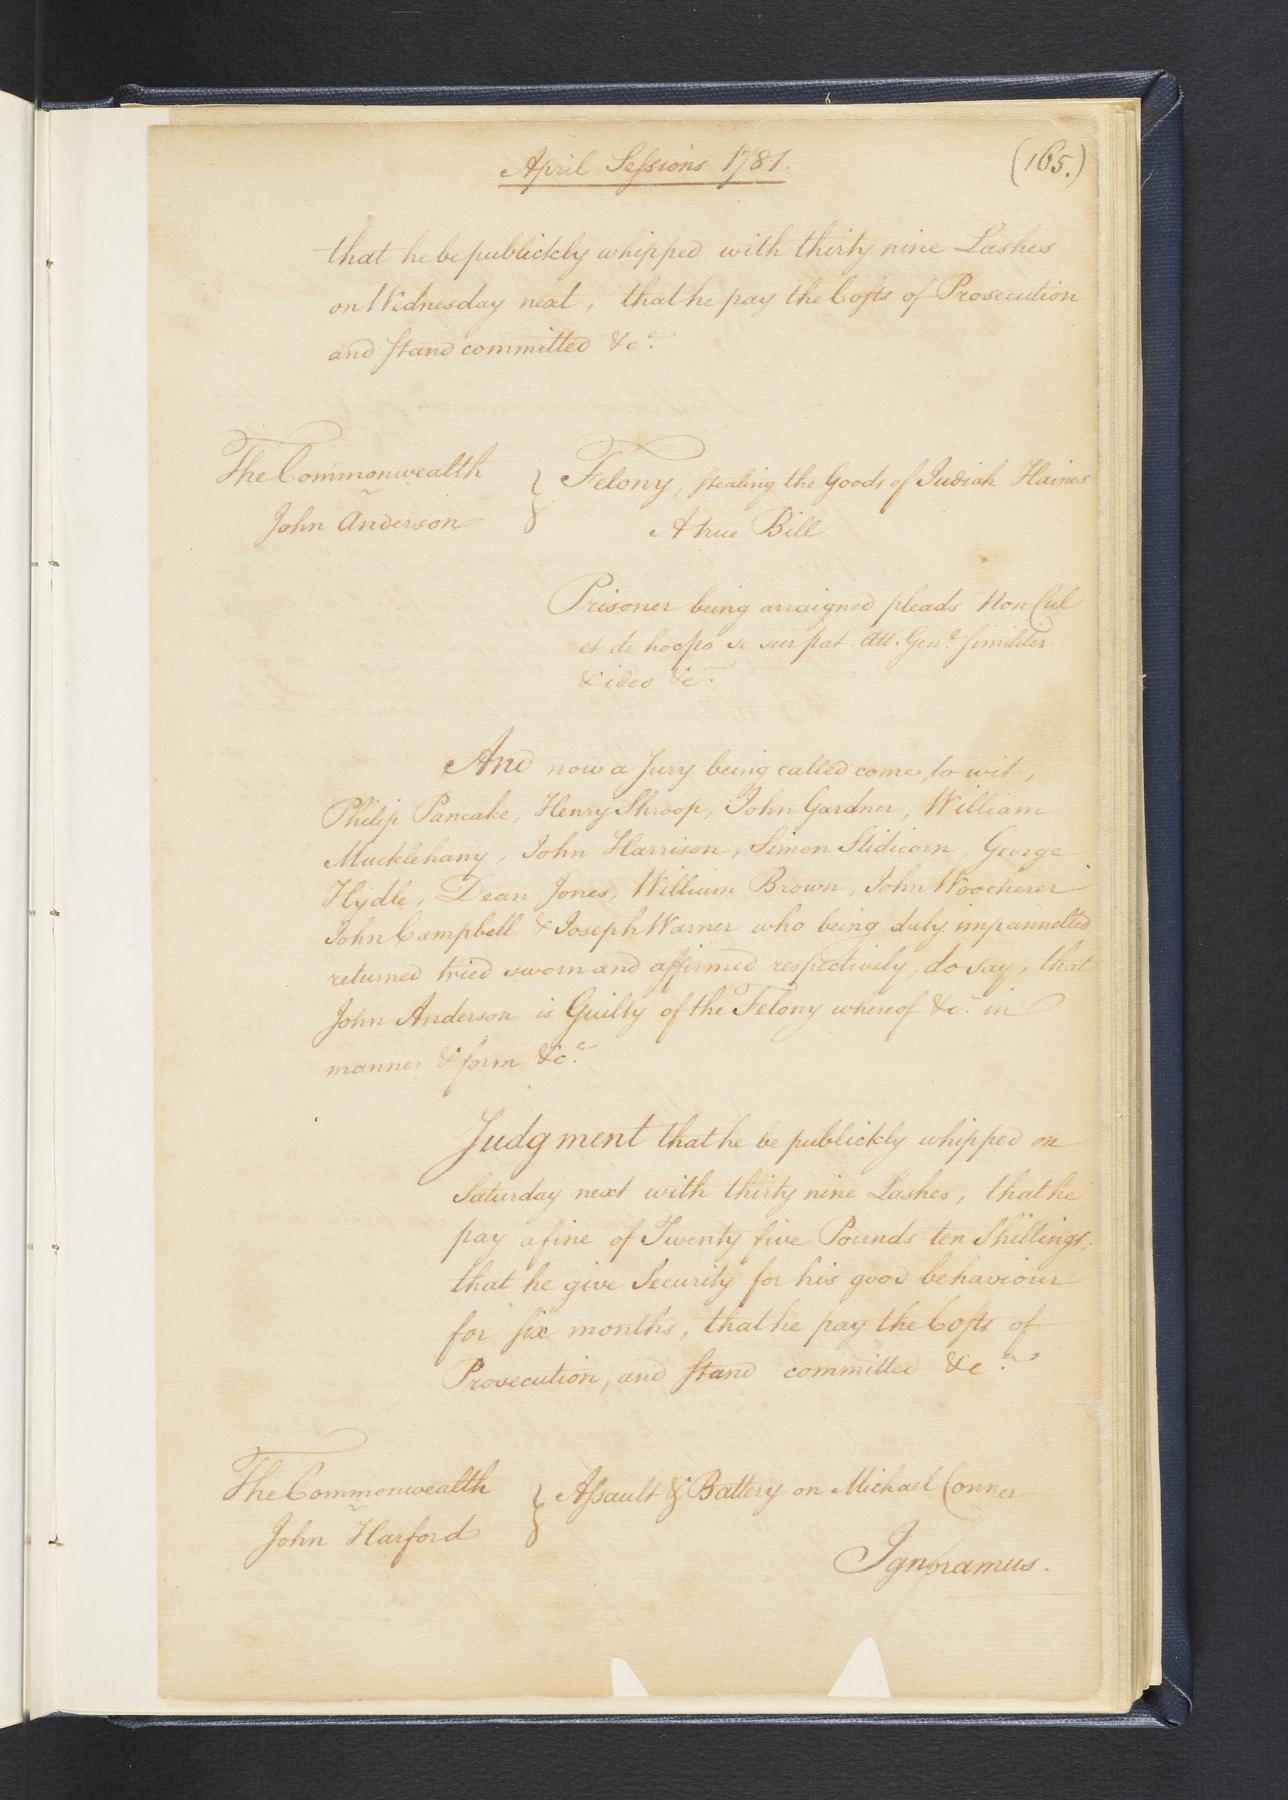 April Sessions 1781.
(165.)
that he be publickly whipped with thirty nine Lashes
on Wednesday next, that he pay the Costs of Prosecution
and stand committed &c.
The Commonwealth
v
John Anderson
Felony, stealing the Goods of Judiah Haines
A true Bill
Prisoner being arraigned pleads Non Cul
et de hoc po se sur pat. Att. Genl. similiter
& ideo &c.
And now a Jury being called come, to wit,
Philip Pancake, Henry Shroop, John Gardner, William
Mucklehany, John Harrison, Simon Slidicorn, George
Hydle, Dean Jones, William Brown, John Woocherer
John Campbell & Joseph Warner who being duly impannelled
returned tried sworn and affirmed respectively, do say, that
John Anderson is Guilty of the Felony whereof &c. in
manner & form &c.
Judgment that he be publickly whipped on
Saturday next with thirty nine Lashes, that he
pay a fine of Twenty five Pounds ten Shillings,
that he give Security for his good behaviour
for six months, that he pay the Costs of
Prosecution, and stand committed &c.
The Commonwealth
v
John Harford
Assault & Battery on Michael Conner
Ignoramus.